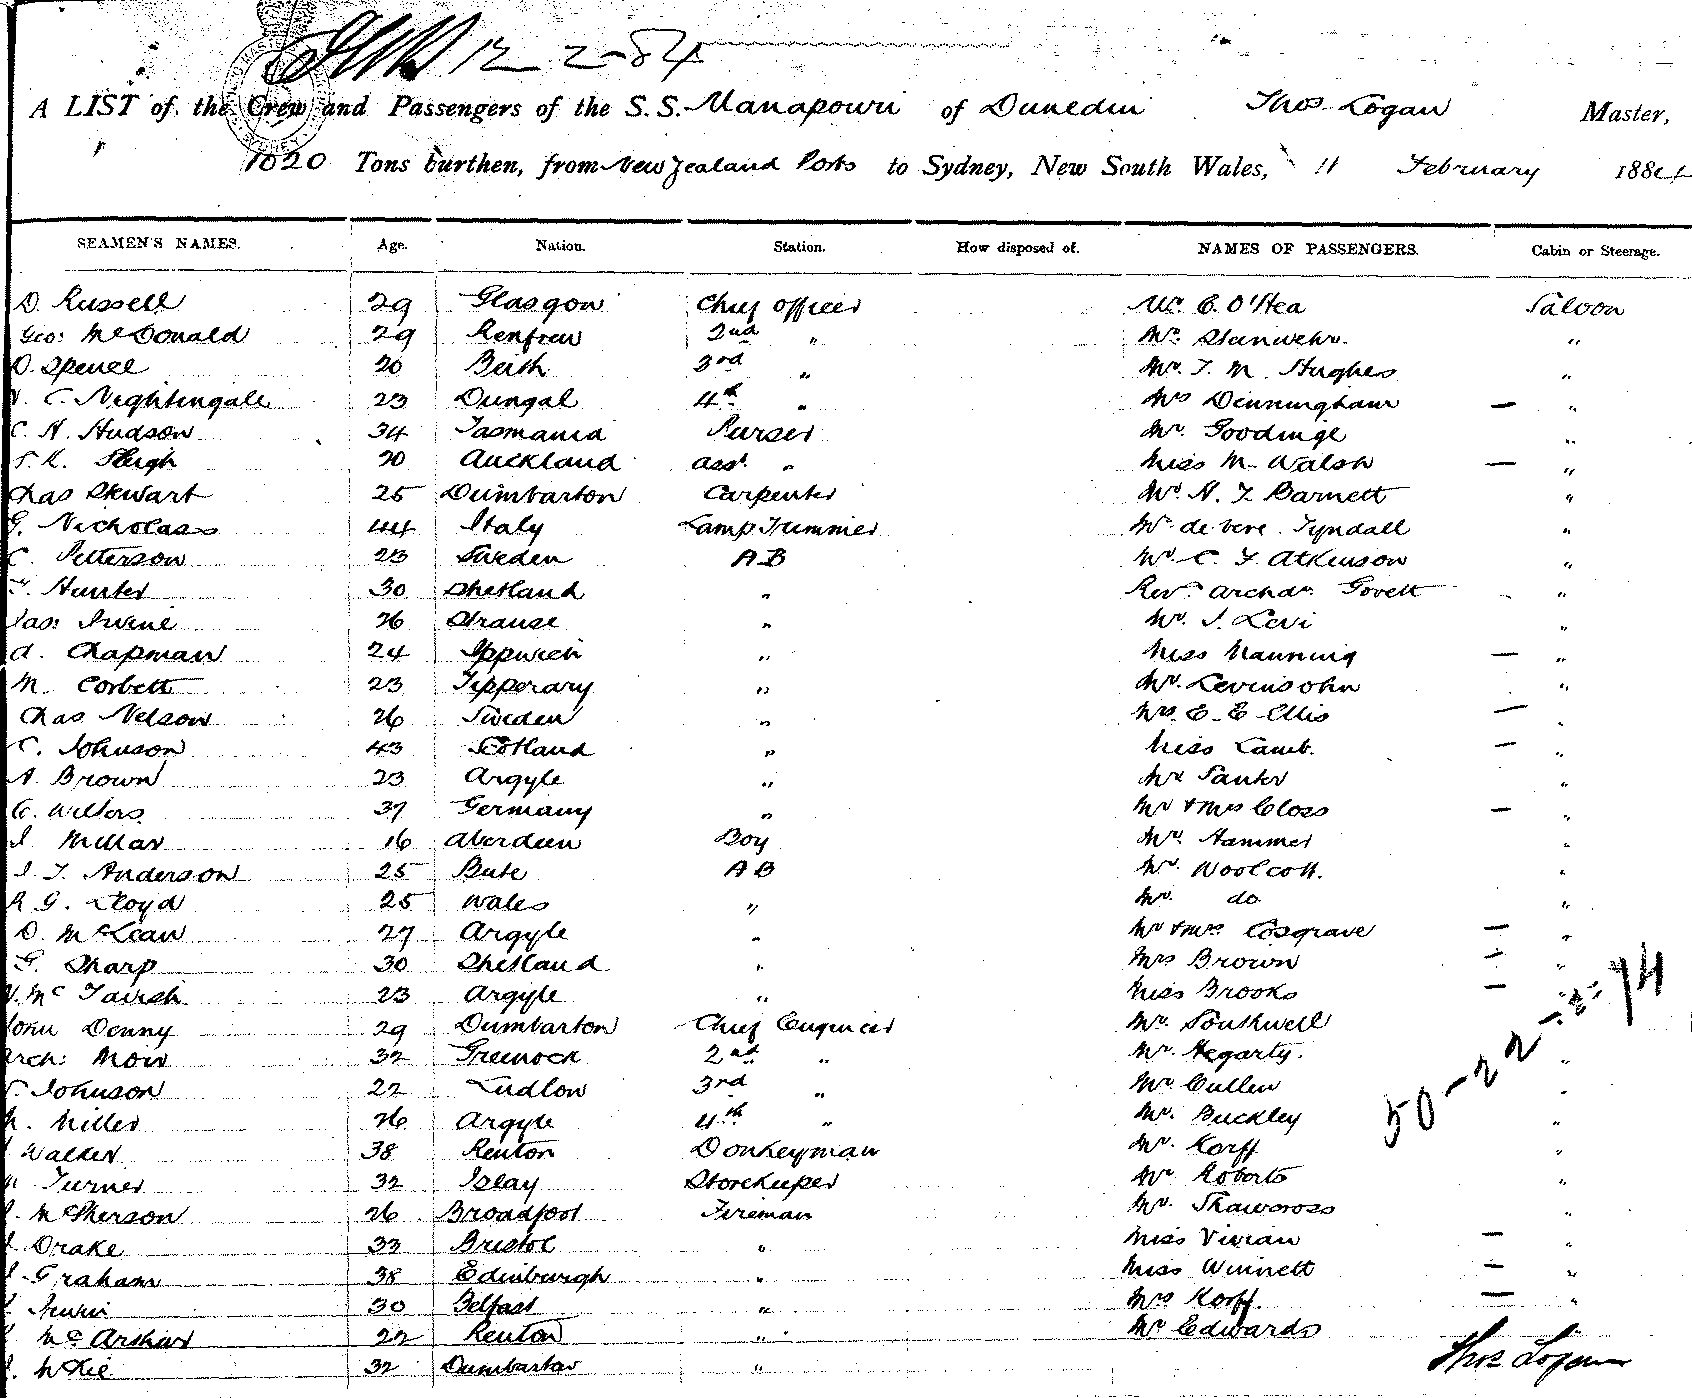 12-2-84
A LIST of the Crew and Passengers of the S.S. Manapouri of Dunedin Thos Logan Master,
1020 Tons burthen, from New Zealand Ports to Sydney, New South Wales, 11 February 1884
SEAMEN'S NAMES. Age. Nation. Station. How disposed of. NAMES OF PASSENGERS. Cabin or Steerage.
D. Russell 29 Glasgow Chief Officer Mr. C. O'Hea Saloon
Geo: McDonald 29 Renfrew 2nd " Mr. Stanwehr. "
D. Spence 20 Beith 3rd " Mr. T. M. Hughes "
C. Nightingale 23 4th " Mrs Denningham — "
C. H. Hudson 34 Tasmania Purser Mr. Goodinge "
Sleigh 20 Auckland asst. " Miss M. Walsh — "
Chas Stewart 25 Dumbarton Carpenter Mr. H. T. Barnett "
G. Nicholass 44 Italy Lamp Trimmer Mr de Vere Tyndall "
C. Petterson 23 Sweden A B Mr. C. F. Atkinson "
Hunter 30 Shetland " Revd. Archdn. Govett "
Jas: Irvine 26 " Mr. J. Levi "
A. Chapman 24 Ippwich " Miss Manning — "
M. Corbett 23 Tipperary " Mr. Levinsohn "
Chas Nelson 26 Sweden " Mrs. E. E. Ellis — "
C. Johnson 43 Scotland " Miss Lamb. — "
A. Brown 23 Argyle " Mr "
C. Wilters 37 Germany " Mr & Mrs Closs — "
J. Millar 16 Aberdeen Boy Mr. Hammer "
J. T. Anderson 25 Bute A B Mr. Woolcott. "
R G. Lloyd 25 Wales " Mr. do "
D. McLean 27 Argyle " Mr & Mrs Cosgrave — "
G. Sharp 30 Shetland " Mrs Brown — "
McTavish 23 Argyle " Miss Brooks — "
John Denny 29 Dumbarton Chief Engineer Mr. Southwell
Arch: Moir 32 Greenock 2nd " Mr. Hegarty. "
Johnson 22 Ludlow 3rd " Mr. Cullen "
Miller 26 Argyle 4th " Mr. Buckley "
Walker 38 Renton Donkeyman Mr. Korff "
Turner 32 Islay Storekeeper Mr Roberts "
McPherson 26 Broadfoot Fireman Mr. Shawcross "
Drake 33 Bristol " Miss Vivian — "
Graham 38 Edinburgh " Miss Winnett — "
30 Belfast " Mrs Korff. — "
McArthur 22 Renton " Mr Edwards
McKie 32 Dumbarton "
50-22-2-74
Thos Logan